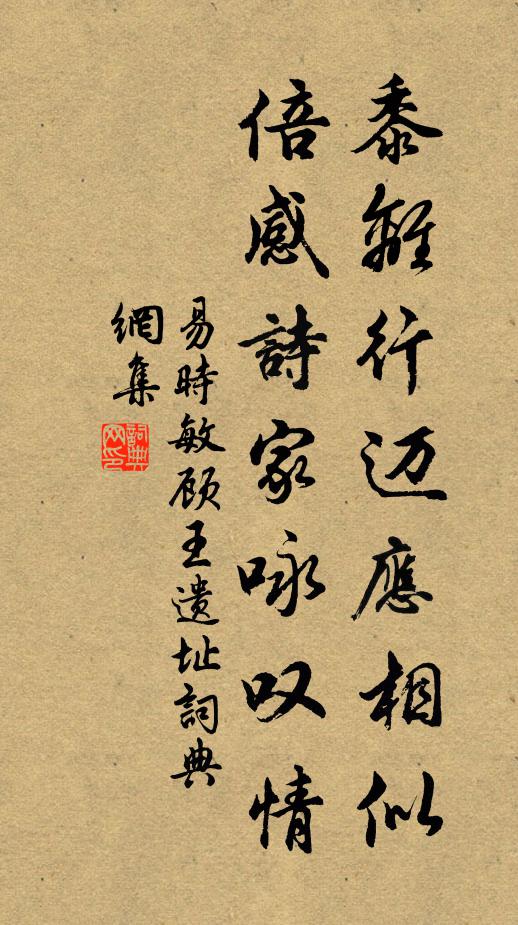 黍離行迈應相似
倍感詩家咏叹情
易時敏顾王遗址詞典
網集
詞典
网印